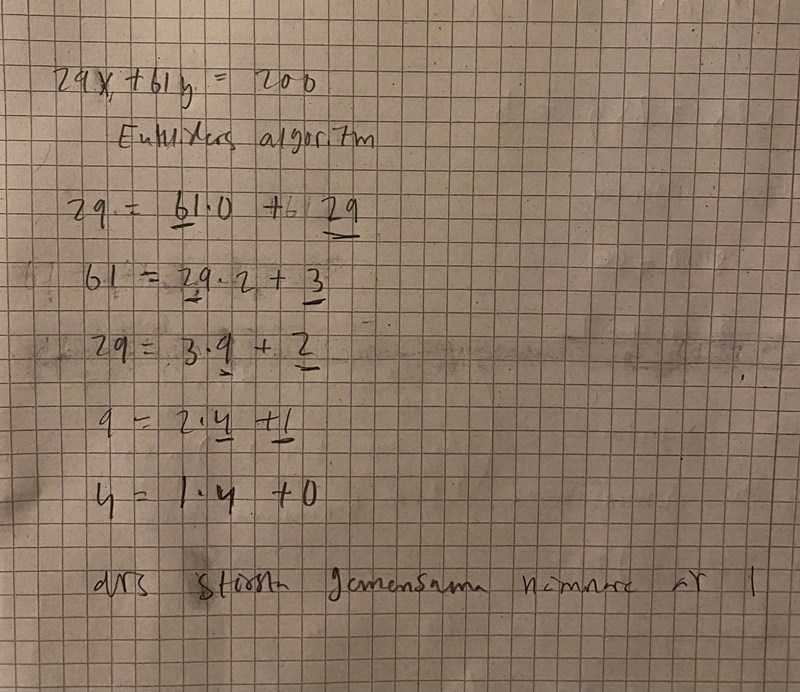 29x + 61y = 200
Euklides algoritm
29 = 61·0 + 29
61 = 29·2 + 3
29 = 3·9 + 2
9 = 2·4 + 1
4 = 1·4 + 0
dvs största gemensama nämnare är 1